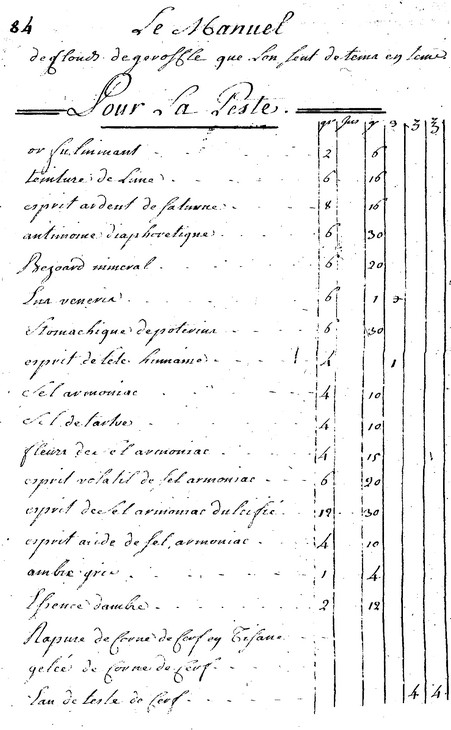 84 Le Manuel
de Clouds de geroffle que l'on sent de tems en tems
Pour La Peste.
gr gr ℈ ʒ ℥
or fulminant 2 6
teinture de Lune 6 16
esprit ardent de saturne 8 16
antimoine diaphoretique 6 30
Bezoard mineral 6 20
Ens veneris 6 1 ℈
Stomachique de poterius 6 30
esprit de tete humaine 4 1
Sel armoniac 4 10
Sel de tartre 4 10
fleurs de sel armoniac 4 15
esprit volatil de sel armoniac 6 20
esprit de sel armoniac dulcifié 12 30
esprit acide de sel armoniac 4 10
ambre gris 1 4
Essence d'ambre 2 12
Rapure de Corne de Cerf en Tisane
gelée de Corne de Cerf
Eau de teste de Cerf 4 4